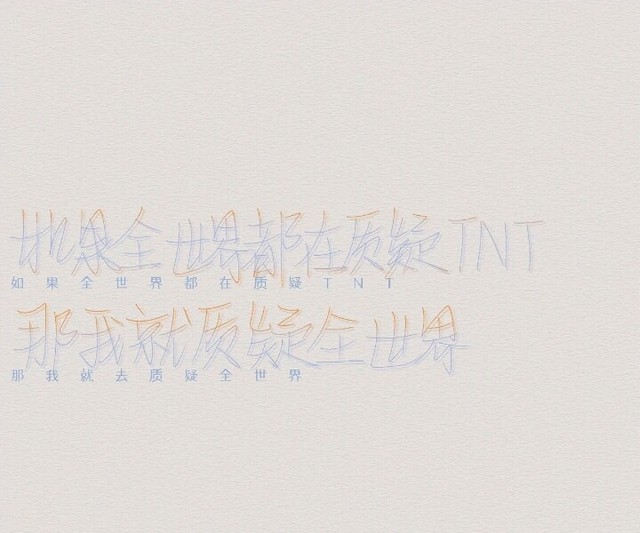 如果全世界都在质疑TNT
如果全世界都在质疑TNT
那我就质疑全世界
那我就去质疑全世界